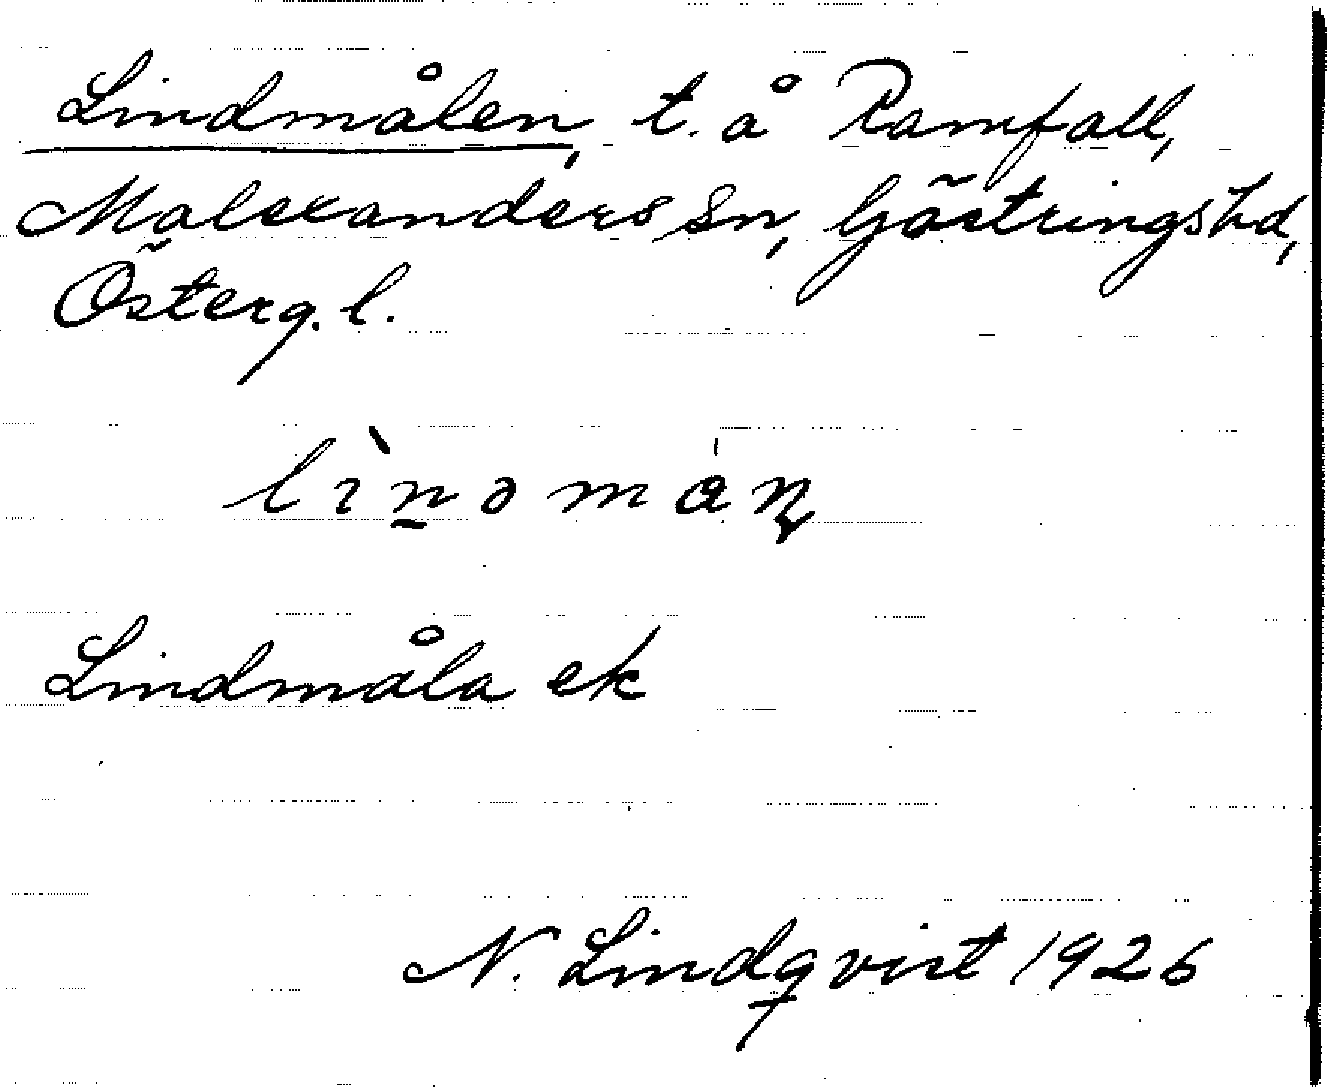 Lindmålen, t. å Ramfall,
Malexanders sn, Göstrings hd,
Österg. l.
lìnəmàɳ
Lindmåla ek
N. Lindqvist 1926